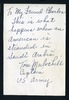 To My Friend Charlie
This is what
happens when an
American is
standed in
Saudi Arabia
Tom
Captain
US Army